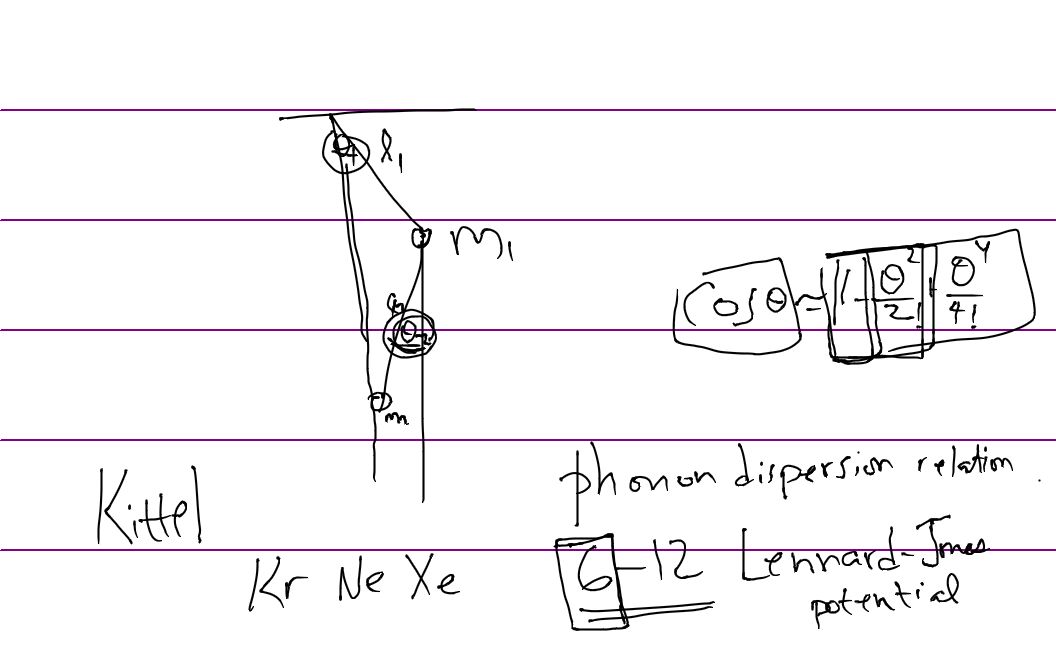 θ₁ l₁
m₁
θ₂
m
cos θ ≈ 1 - θ²/2! + θ⁴/4!
phonon dispersion relation
Kittel
6-12 Lennard-Jones
potential
Kr Ne Xe